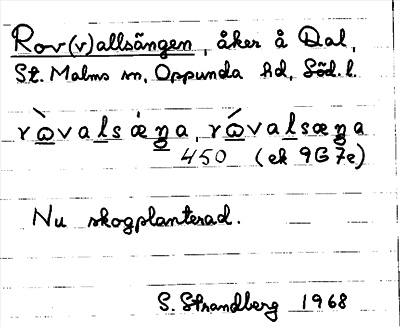 Rov(v)allsängen, åker å Dal,
St. Malms sn, Oppunda hd, Söd. l.
rὼvalsæ̀ŋa, rώvalsæŋa
450 (ek 9G 7e)
Nu skogplanterad.
S. Strandberg 1968